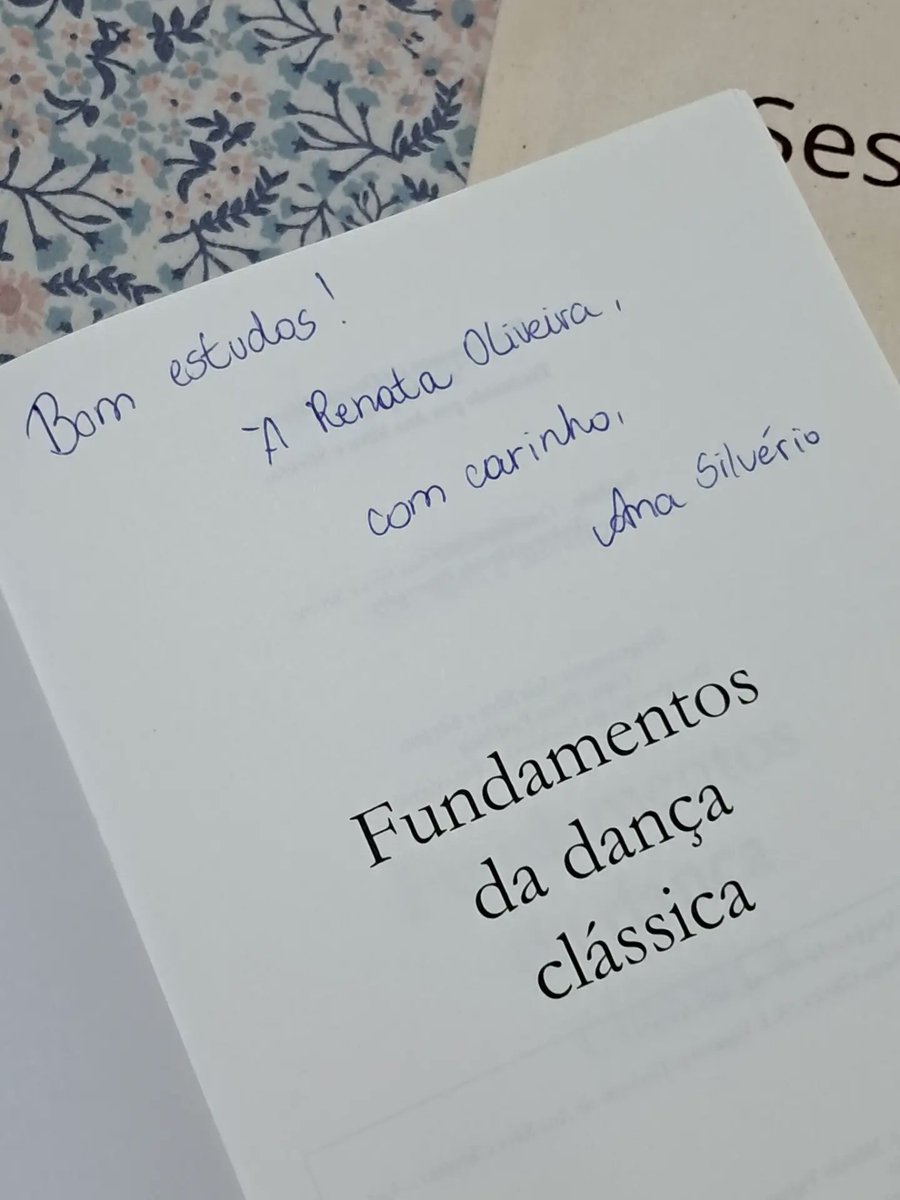 Ses
Bom estudos!
À Renata Oliveira,
com carinho,
Ana Silvério
Fundamentos
da dança
clássica